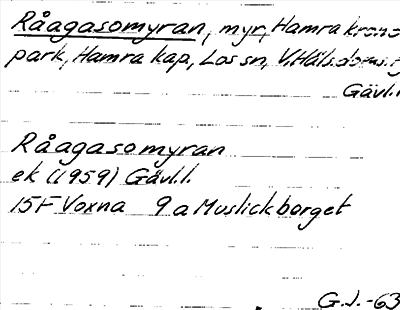 Råagasomyran, myr, Hamra krono
park, Hamra kap, Los sn, V. Häls. doms.
Gävl.l
Råagasomyran
ek (1959) Gävl.l.
15F Voxna 9a Muslickberget
G.J.-63